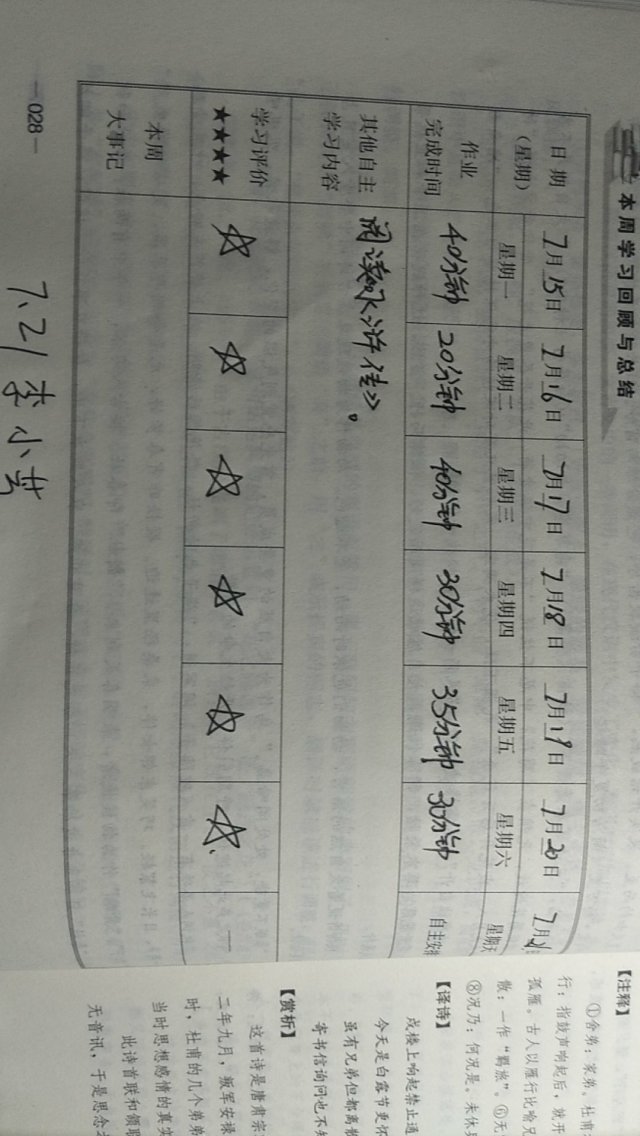 本周学习回顾与总结
日期（星期） 7月15日 7月16日 7月17日 7月18日 7月19日 7月20日 7月21
星期一 星期二 星期三 星期四 星期五 星期六 星期
作业完成时间 40分钟 20分钟 40分钟 30分钟 35分钟 30分钟 自主安
其他自主学习内容 阅读《水浒传》。
学习评价 ★★★★ ☆ ☆ ☆ ☆ ☆ ☆ —
本周大事记
— 028 —
7.21 李小
【注释】
①舍弟：家弟。杜甫
行：指鼓声响起后，就开
孤雁。古人以雁行比喻兄
散：一作“羁旅”。⑥无
⑧况乃：何况是。未休
【译诗】
戍楼上响起禁止通
今天是白露节更怀
虽有兄弟但都离散
寄书信询问也不
【赏析】
这首诗是唐肃宗
二年九月，叛军安禄
时，杜甫的几个弟弟
当时思想感情的真实
此诗首联和颔联
无音讯，于是思念